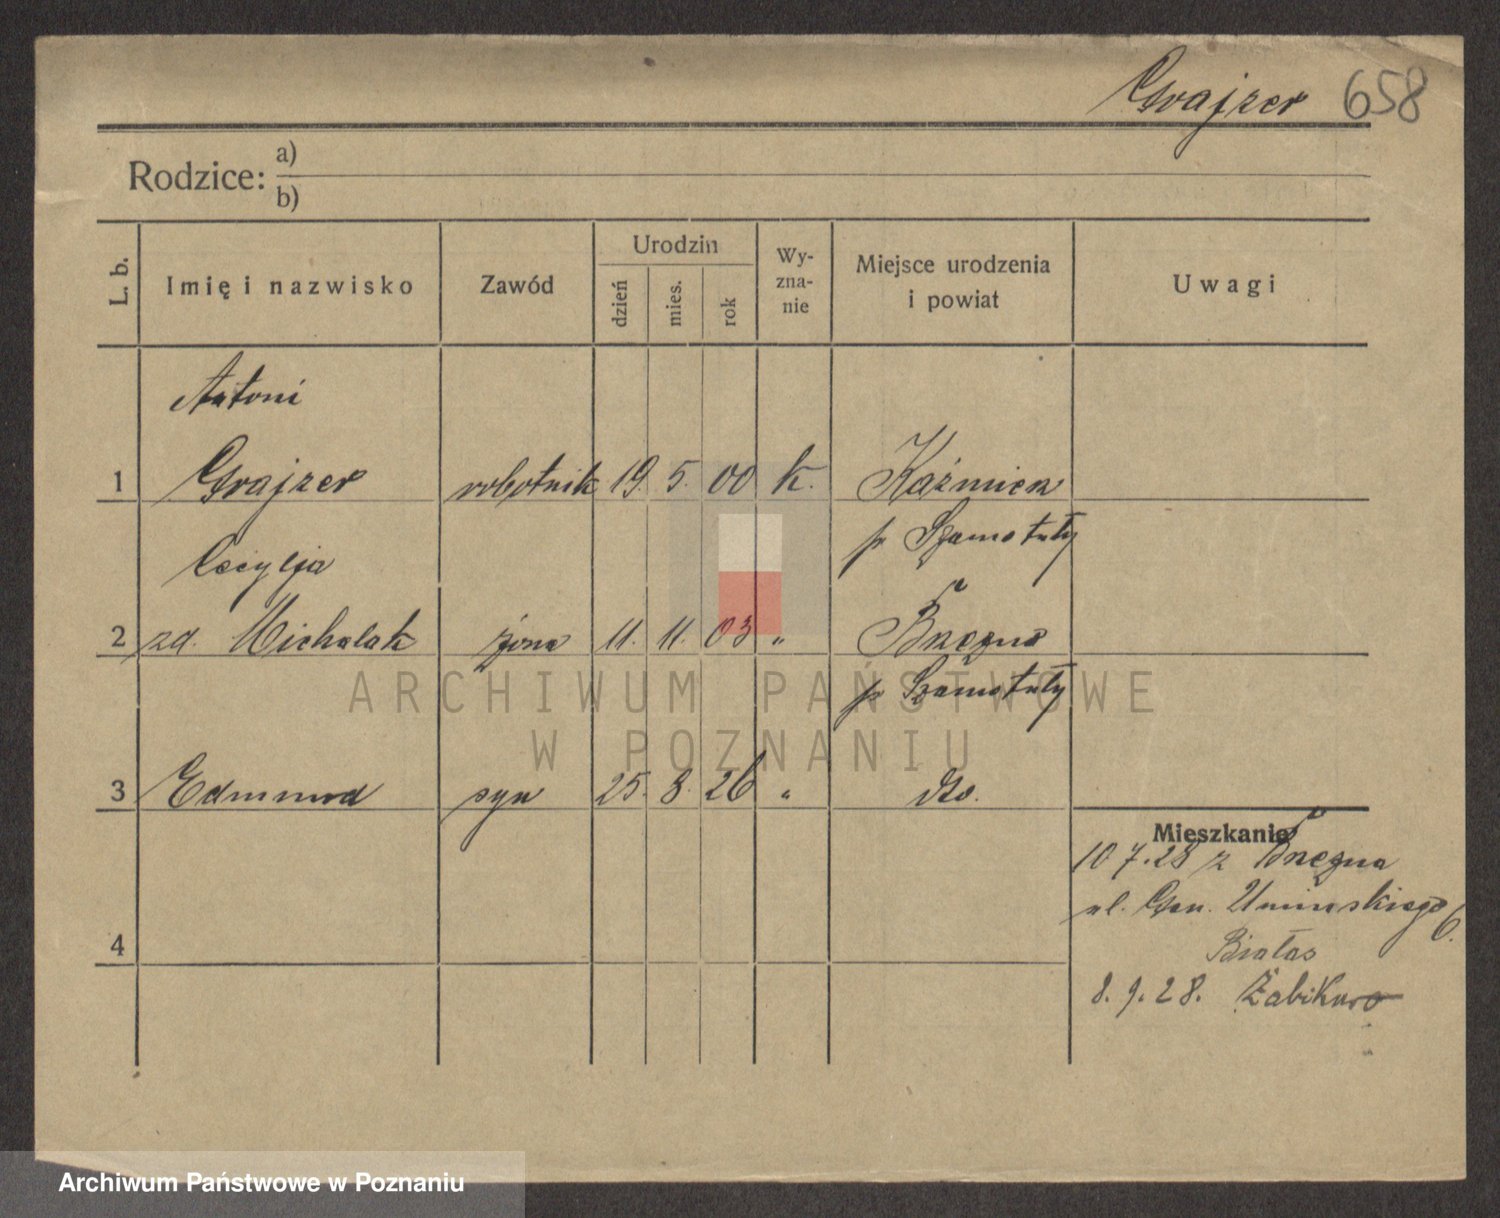 Grajzer 658
Rodzice: a)
b)
L. b. Imię i nazwisko Zawód Urodzin dzień mies. rok Wy-zna-nie Miejsce urodzenia i powiat Uwagi
Antoni
1 Grajzer robotnik 19. 5. 00 k. Kaźmierz
p Szamotuły
Cecylja
2 zd. Michalak żona 11. 11. 03 " Brzezno
p Szamotuły
3 Edmund syn 25. 8. 26 " dto.
Mieszkanie
10 7.28 z Brzezna
ul. Gen. Umińskiego 6.
Białas
4
8.9.28. Żabikowo
ARCHIWUM PAŃSTWOWE
W POZNANIU
Archiwum Państwowe w Poznaniu